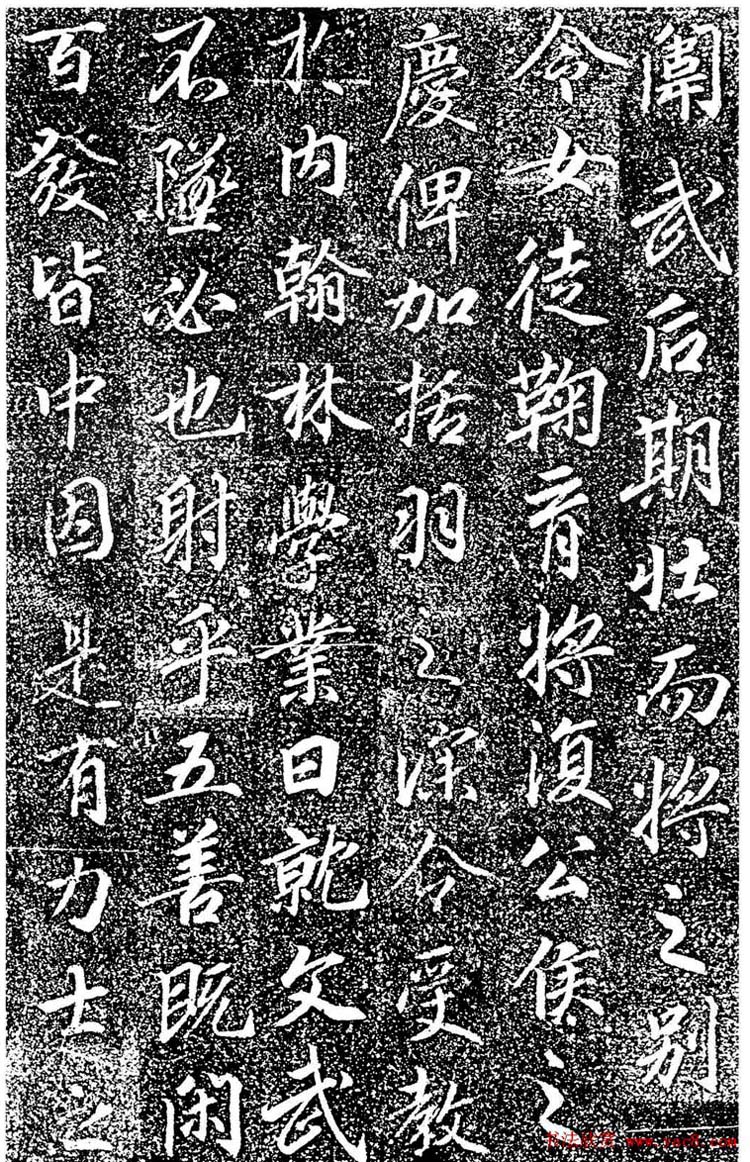 闈武后期壯而將之别
令女徒鞠育將復公侯之
慶俾加括羽之深令受教
於内翰林學業日就文武
不墜必也射乎五善既閑
百發皆中因是有力士之
书法欣赏 www.yac8.com